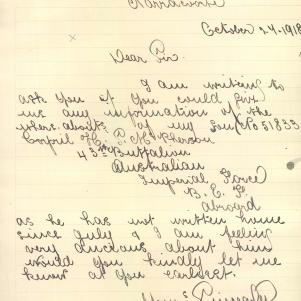 Narracoorte
October 24. 1918
Dear Sir.
I am writing to
ask you if you could give
me any information of the
where abouts of my Son
Corpil McPherson
43rd Battalion
Australian
Imperial Force
B. E. F.
abroad
as he has not written home
since July & I am feeling
very anxious about him
would you kindly let me
know at you earliest.
Yours Sincerely